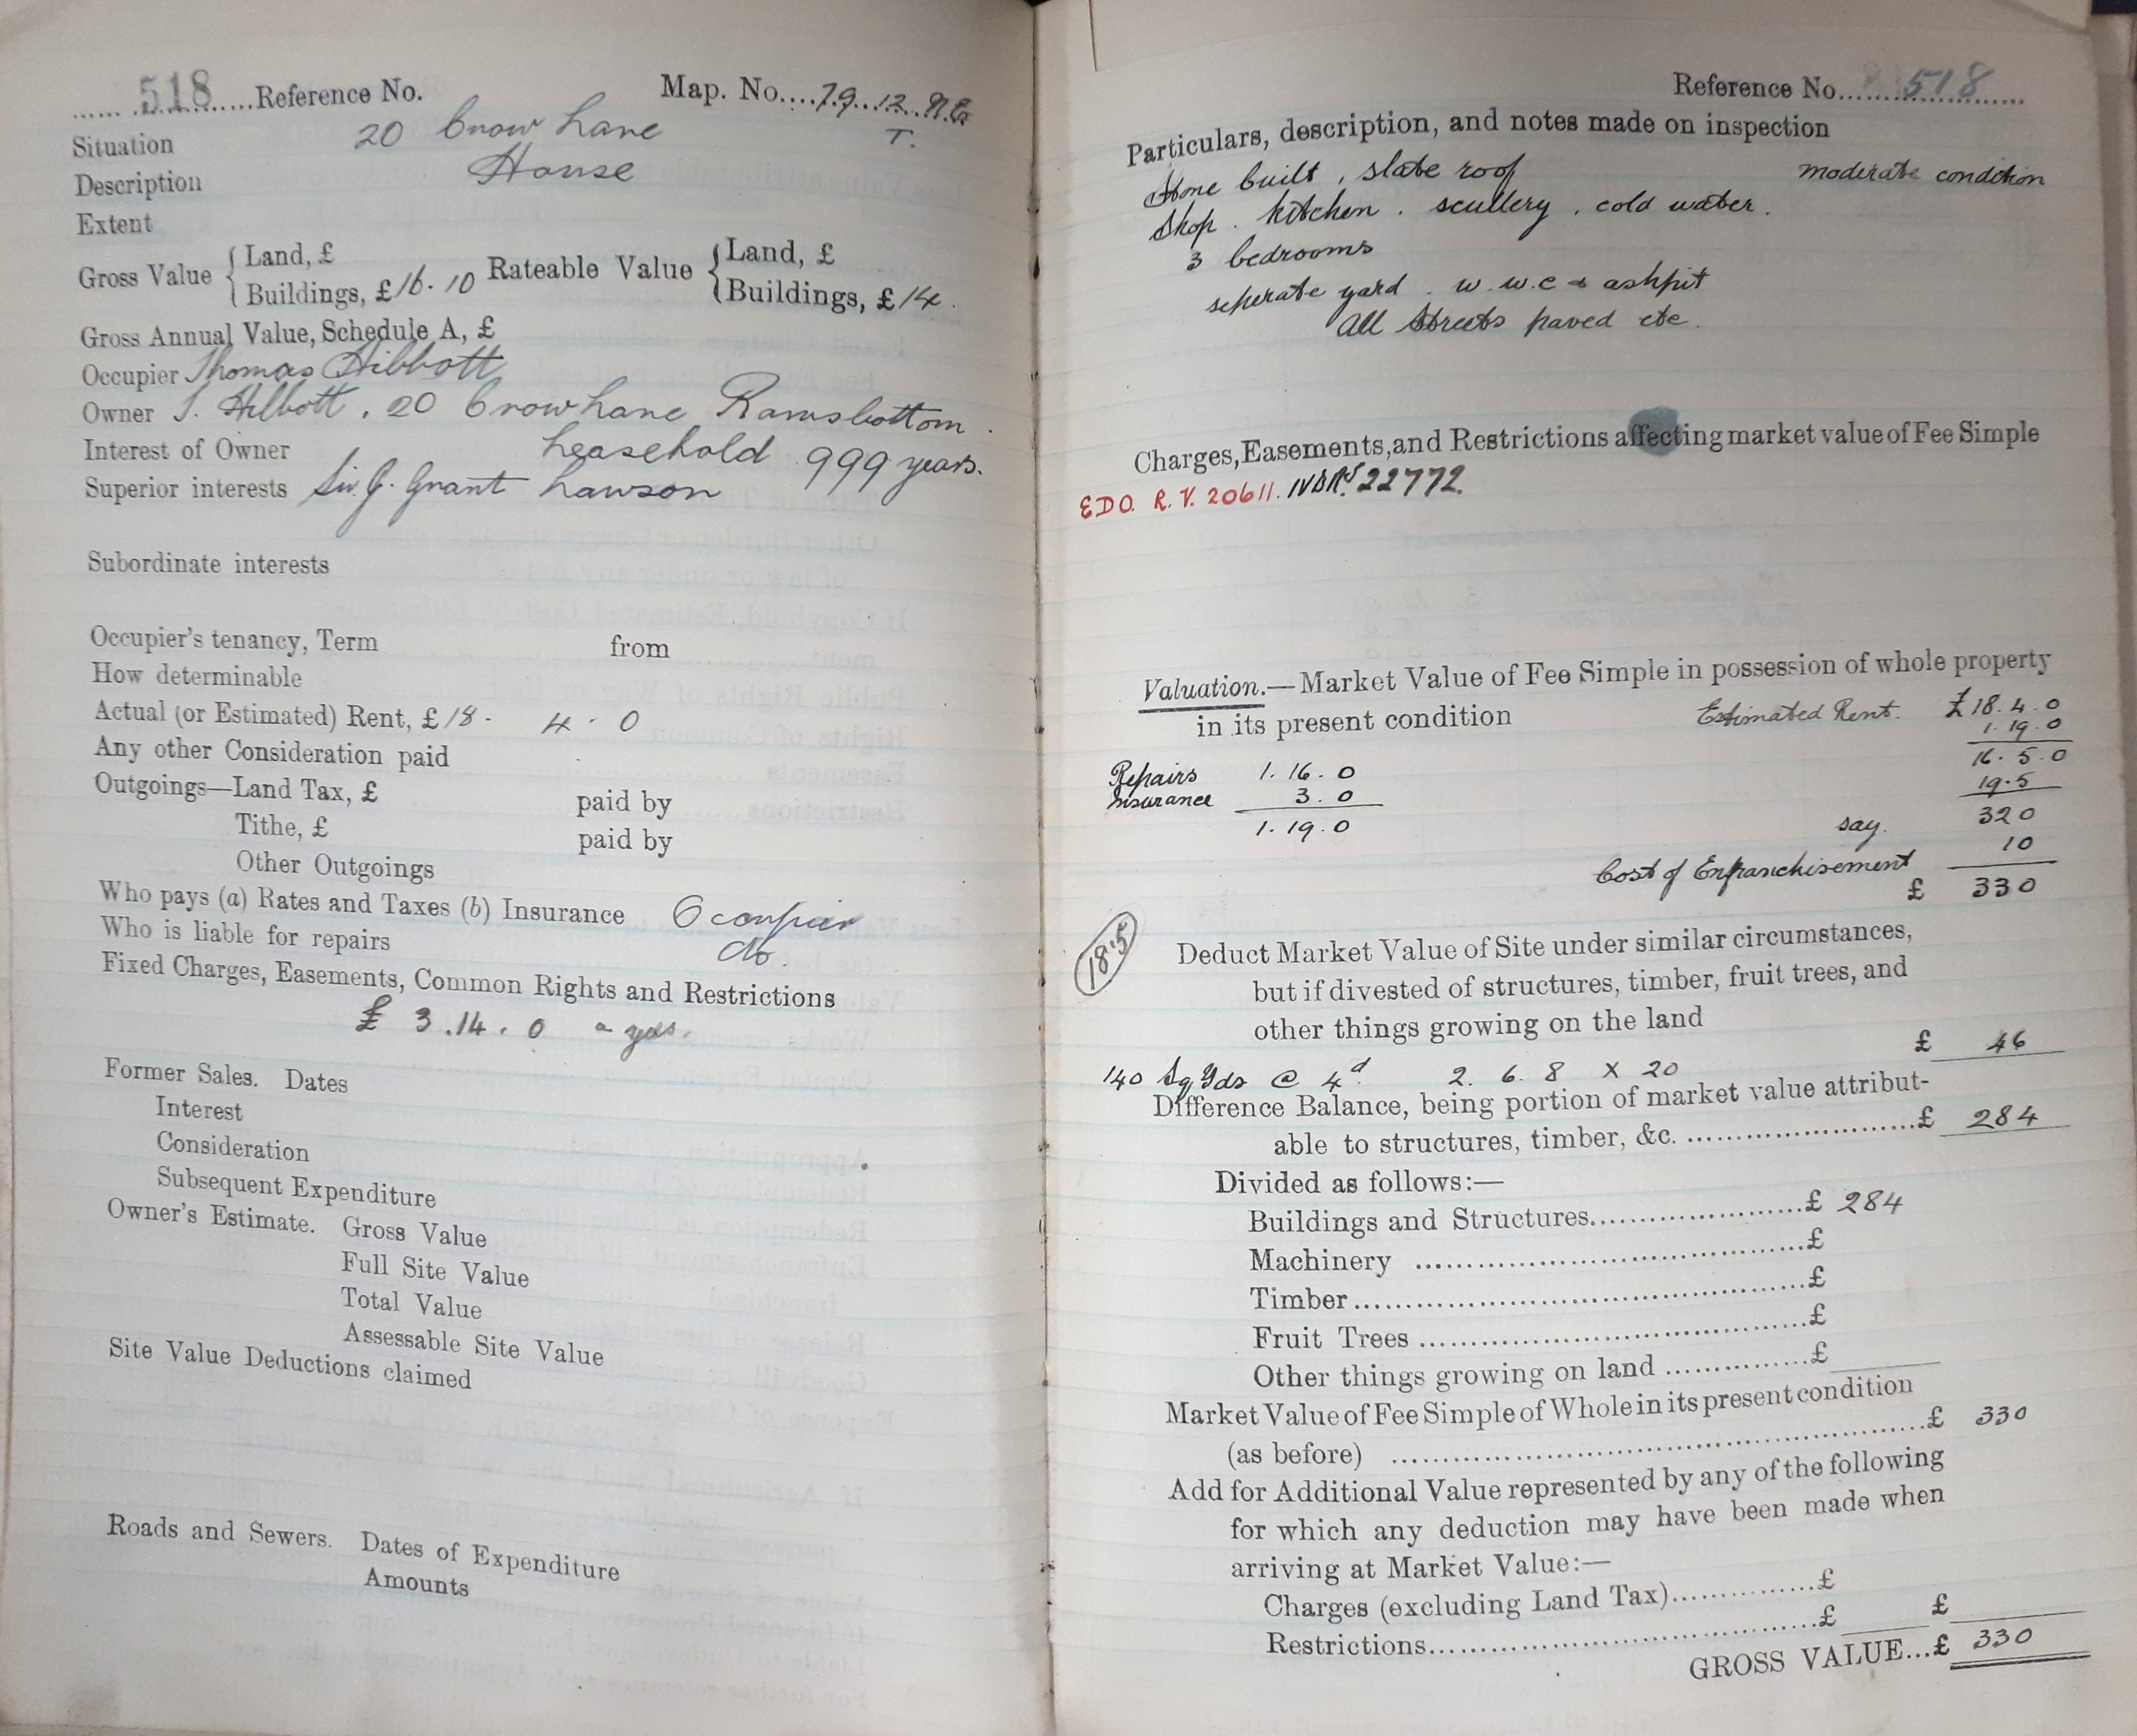 518 Reference No. Map. No. 79. 12. N.E.
Situation 20 Crow Lane T.
Description House
Extent
Gross Value { Land, £ Rateable Value { Land, £
Buildings, £16.10 Buildings, £14.
Gross Annual Value, Schedule A, £
Occupier Thomas Hibbott
Owner T. Hibbott, 20 Crow Lane Ramsbottom.
Interest of Owner Leasehold 999 years.
Superior interests Sir J. Grant Lawson
Subordinate interests
Occupier's tenancy, Term from
How determinable
Actual (or Estimated) Rent, £18. 4. 0
Any other Consideration paid
Outgoings—Land Tax, £ paid by
Tithe, £ paid by
Other Outgoings
Who pays (a) Rates and Taxes (b) Insurance Occupier
Who is liable for repairs do.
Fixed Charges, Easements, Common Rights and Restrictions
£ 3.14.0
Former Sales. Dates
Interest
Consideration
Subsequent Expenditure
Owner's Estimate. Gross Value
Full Site Value
Total Value
Assessable Site Value
Site Value Deductions claimed
Roads and Sewers. Dates of Expenditure
Amounts
Reference No. 518
Particulars, description, and notes made on inspection
Stone built, slate roof moderate condition
Shop. kitchen. scullery. cold water.
3 bedrooms
seperate yard. w.w.c & ashpit
All Streets paved etc.
Charges, Easements, and Restrictions affecting market value of Fee Simple
EDO. R.V. 20611. IVD No. 22772.
Valuation.—Market Value of Fee Simple in possession of whole property
in its present condition Estimated Rent. £18.4.0
1.19.0
16.5.0
Repairs 1.16.0
19.5
Insurance 3.0
say. 320
1.19.0
10
Cost of Enfranchisement
£ 330
18.5
Deduct Market Value of Site under similar circumstances,
but if divested of structures, timber, fruit trees, and
other things growing on the land
£ 46
140 Sq Yds @ 4d 2.6.8 x 20
Difference Balance, being portion of market value attribut-
able to structures, timber, &c. £ 284
Divided as follows:—
Buildings and Structures £ 284
Machinery £
Timber £
Fruit Trees £
Other things growing on land £
Market Value of Fee Simple of Whole in its present condition
(as before) £ 330
Add for Additional Value represented by any of the following
for which any deduction may have been made when
arriving at Market Value:—
Charges (excluding Land Tax) £
Restrictions £ £
GROSS VALUE...£ 330